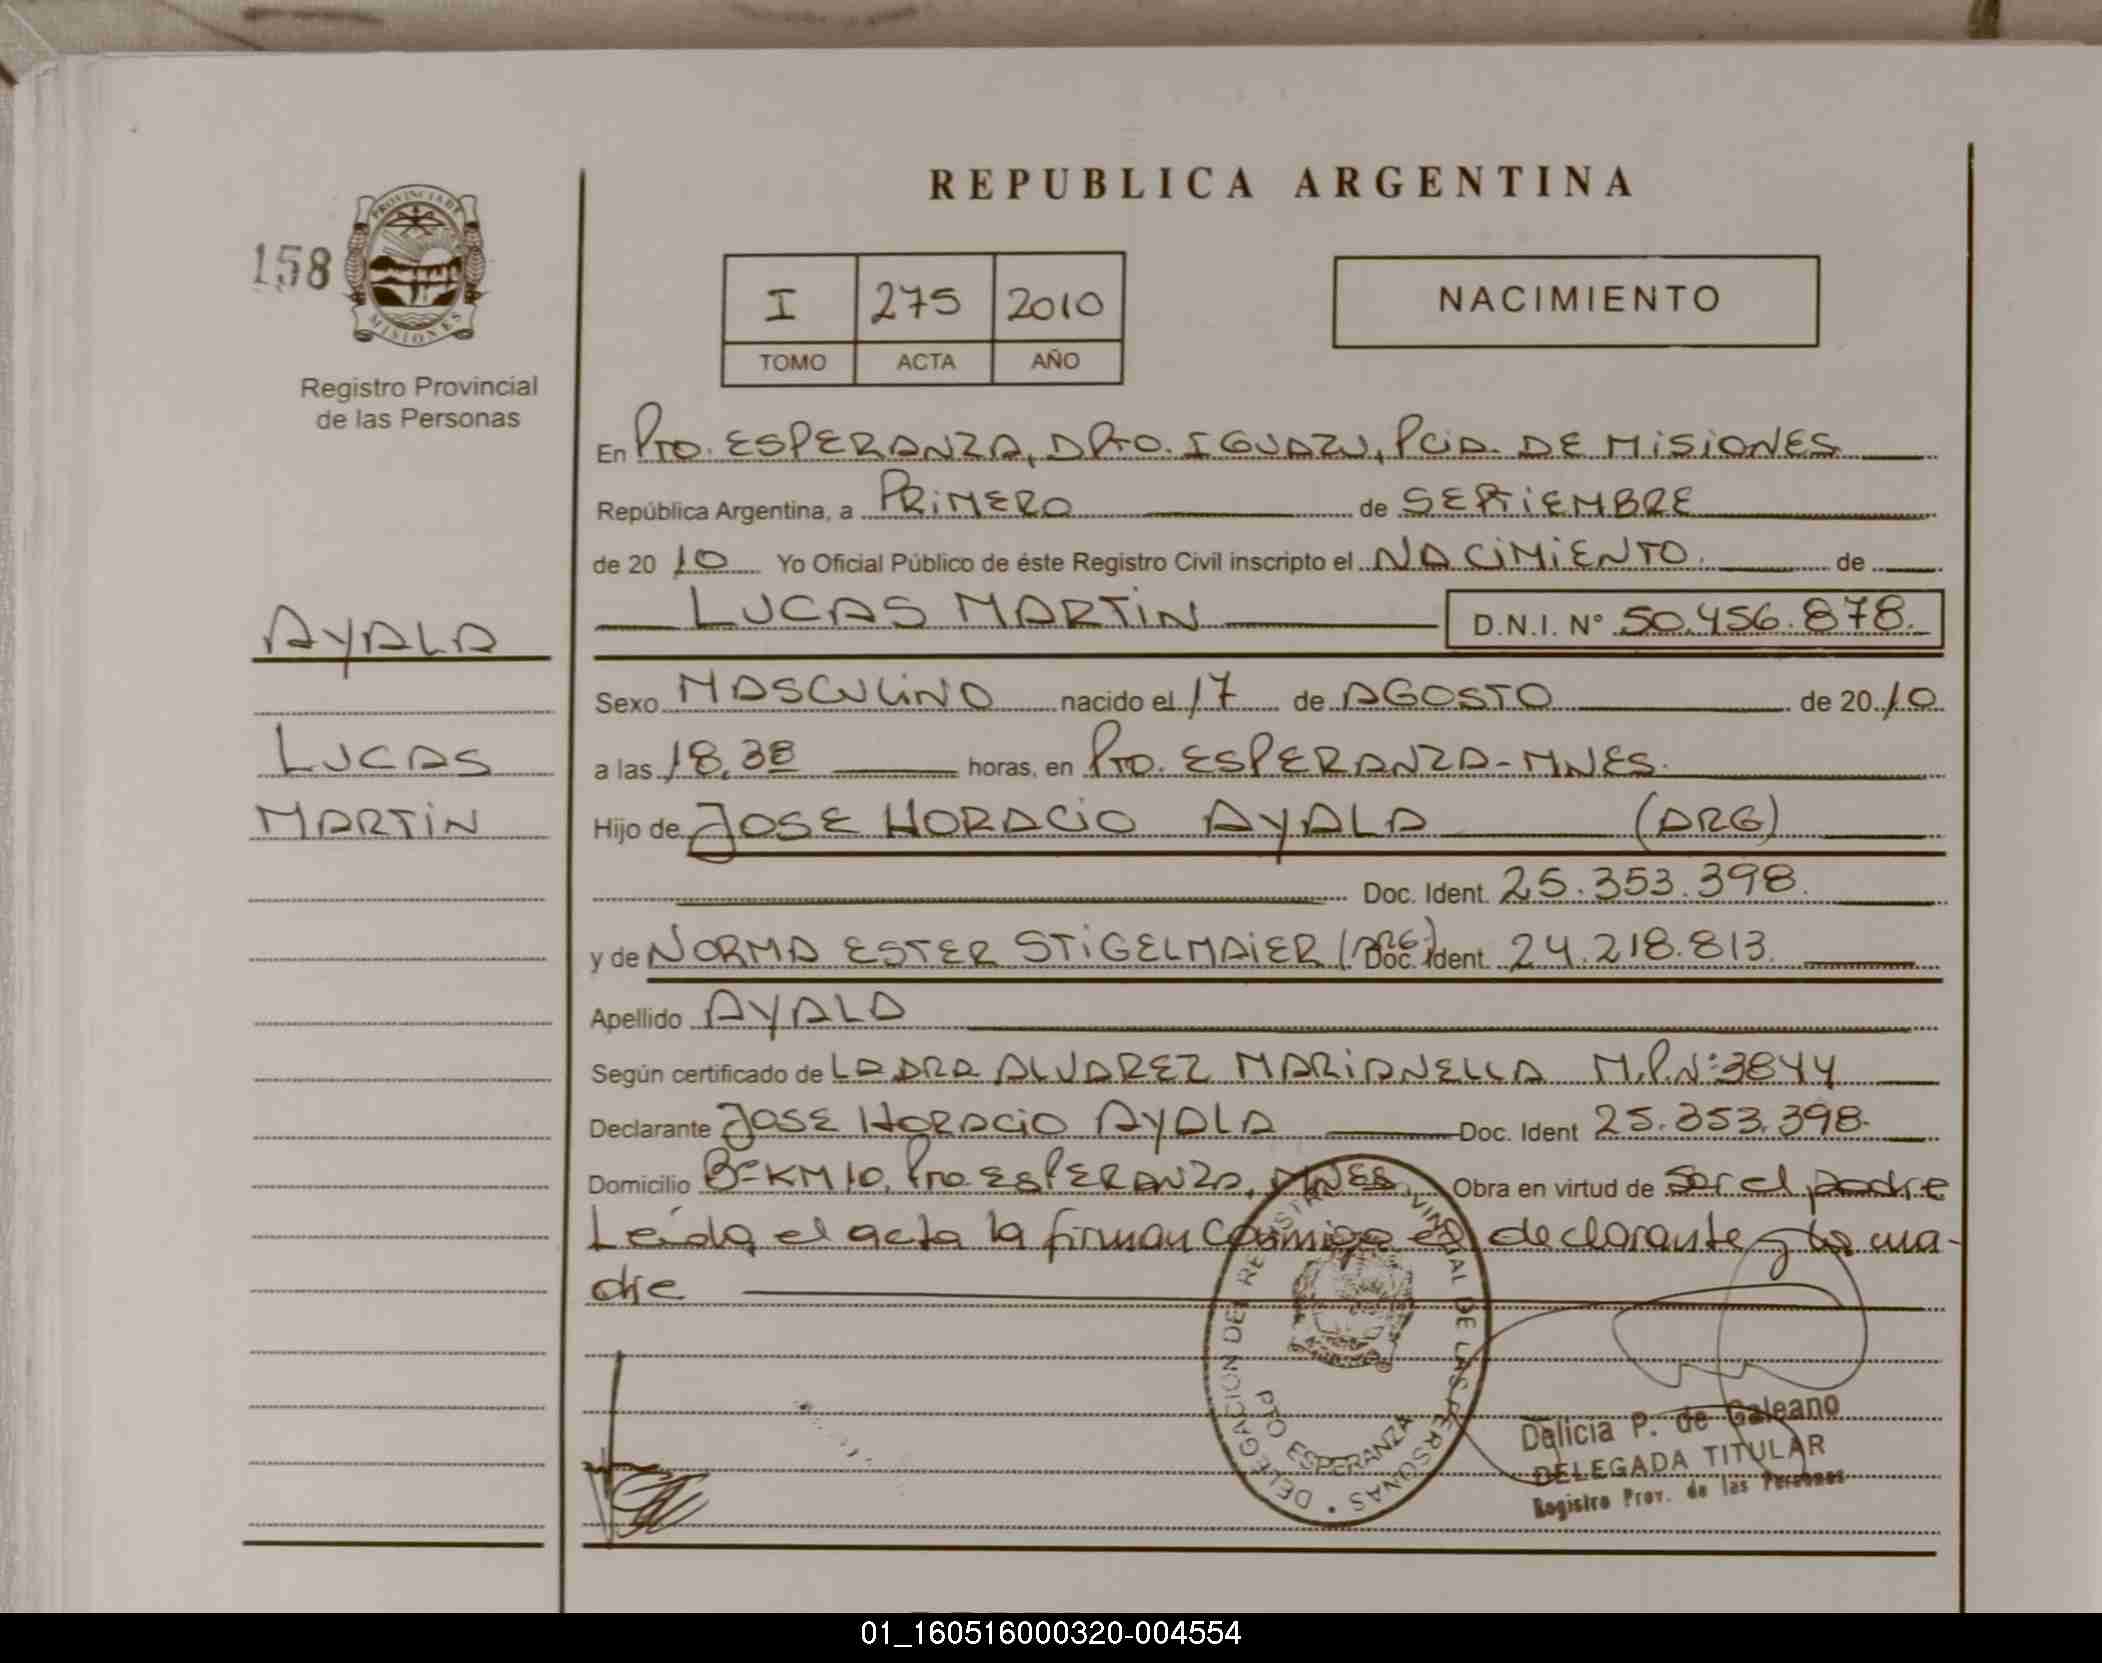 REPUBLICA ARGENTINA
158
PROVINCIA DE
MISIONES
Registro Provincial
de las Personas
I 275 2010
TOMO ACTA AÑO
NACIMIENTO
En Pto. ESPERANZA, DPTO. IGUAZU, PCIA. DE MISIONES
República Argentina, a PRIMERO de SEPTIEMBRE
de 20 10 Yo Oficial Público de éste Registro Civil inscripto el NACIMIENTO. de
LUCAS MARTIN D.N.I. N° 50.456.878.
AYALA
Sexo MASCULINO nacido el 17 de AGOSTO de 20 10
LUCAS
a las 18,38 horas, en Pto. ESPERANZA-MNES.
MARTIN
Hijo de JOSE HORACIO AYALA (ARG)
Doc. Ident. 25.353.398.
y de NORMA ESTER STIGELMAIER (ARG) Doc. Ident. 24.218.813.
Apellido AYALA
Según certificado de LADRA ALVAREZ MARIANELLA M.P.N:3844
Declarante JOSE HORACIO AYALA Doc. Ident 25.353.398.
Domicilio Bº KM 10, Pto ESPERANZA, MNES. Obra en virtud de ser el padre
Leída el acta la firman conmigo el declarante y la ma-
dre
DELEGACION DEL REGISTRO PROVINCIAL DE LAS PERSONAS
PTO ESPERANZA
Delicia P. de Galeano
DELEGADA TITULAR
Registro Prov. de las Personas
01_160516000320-004554